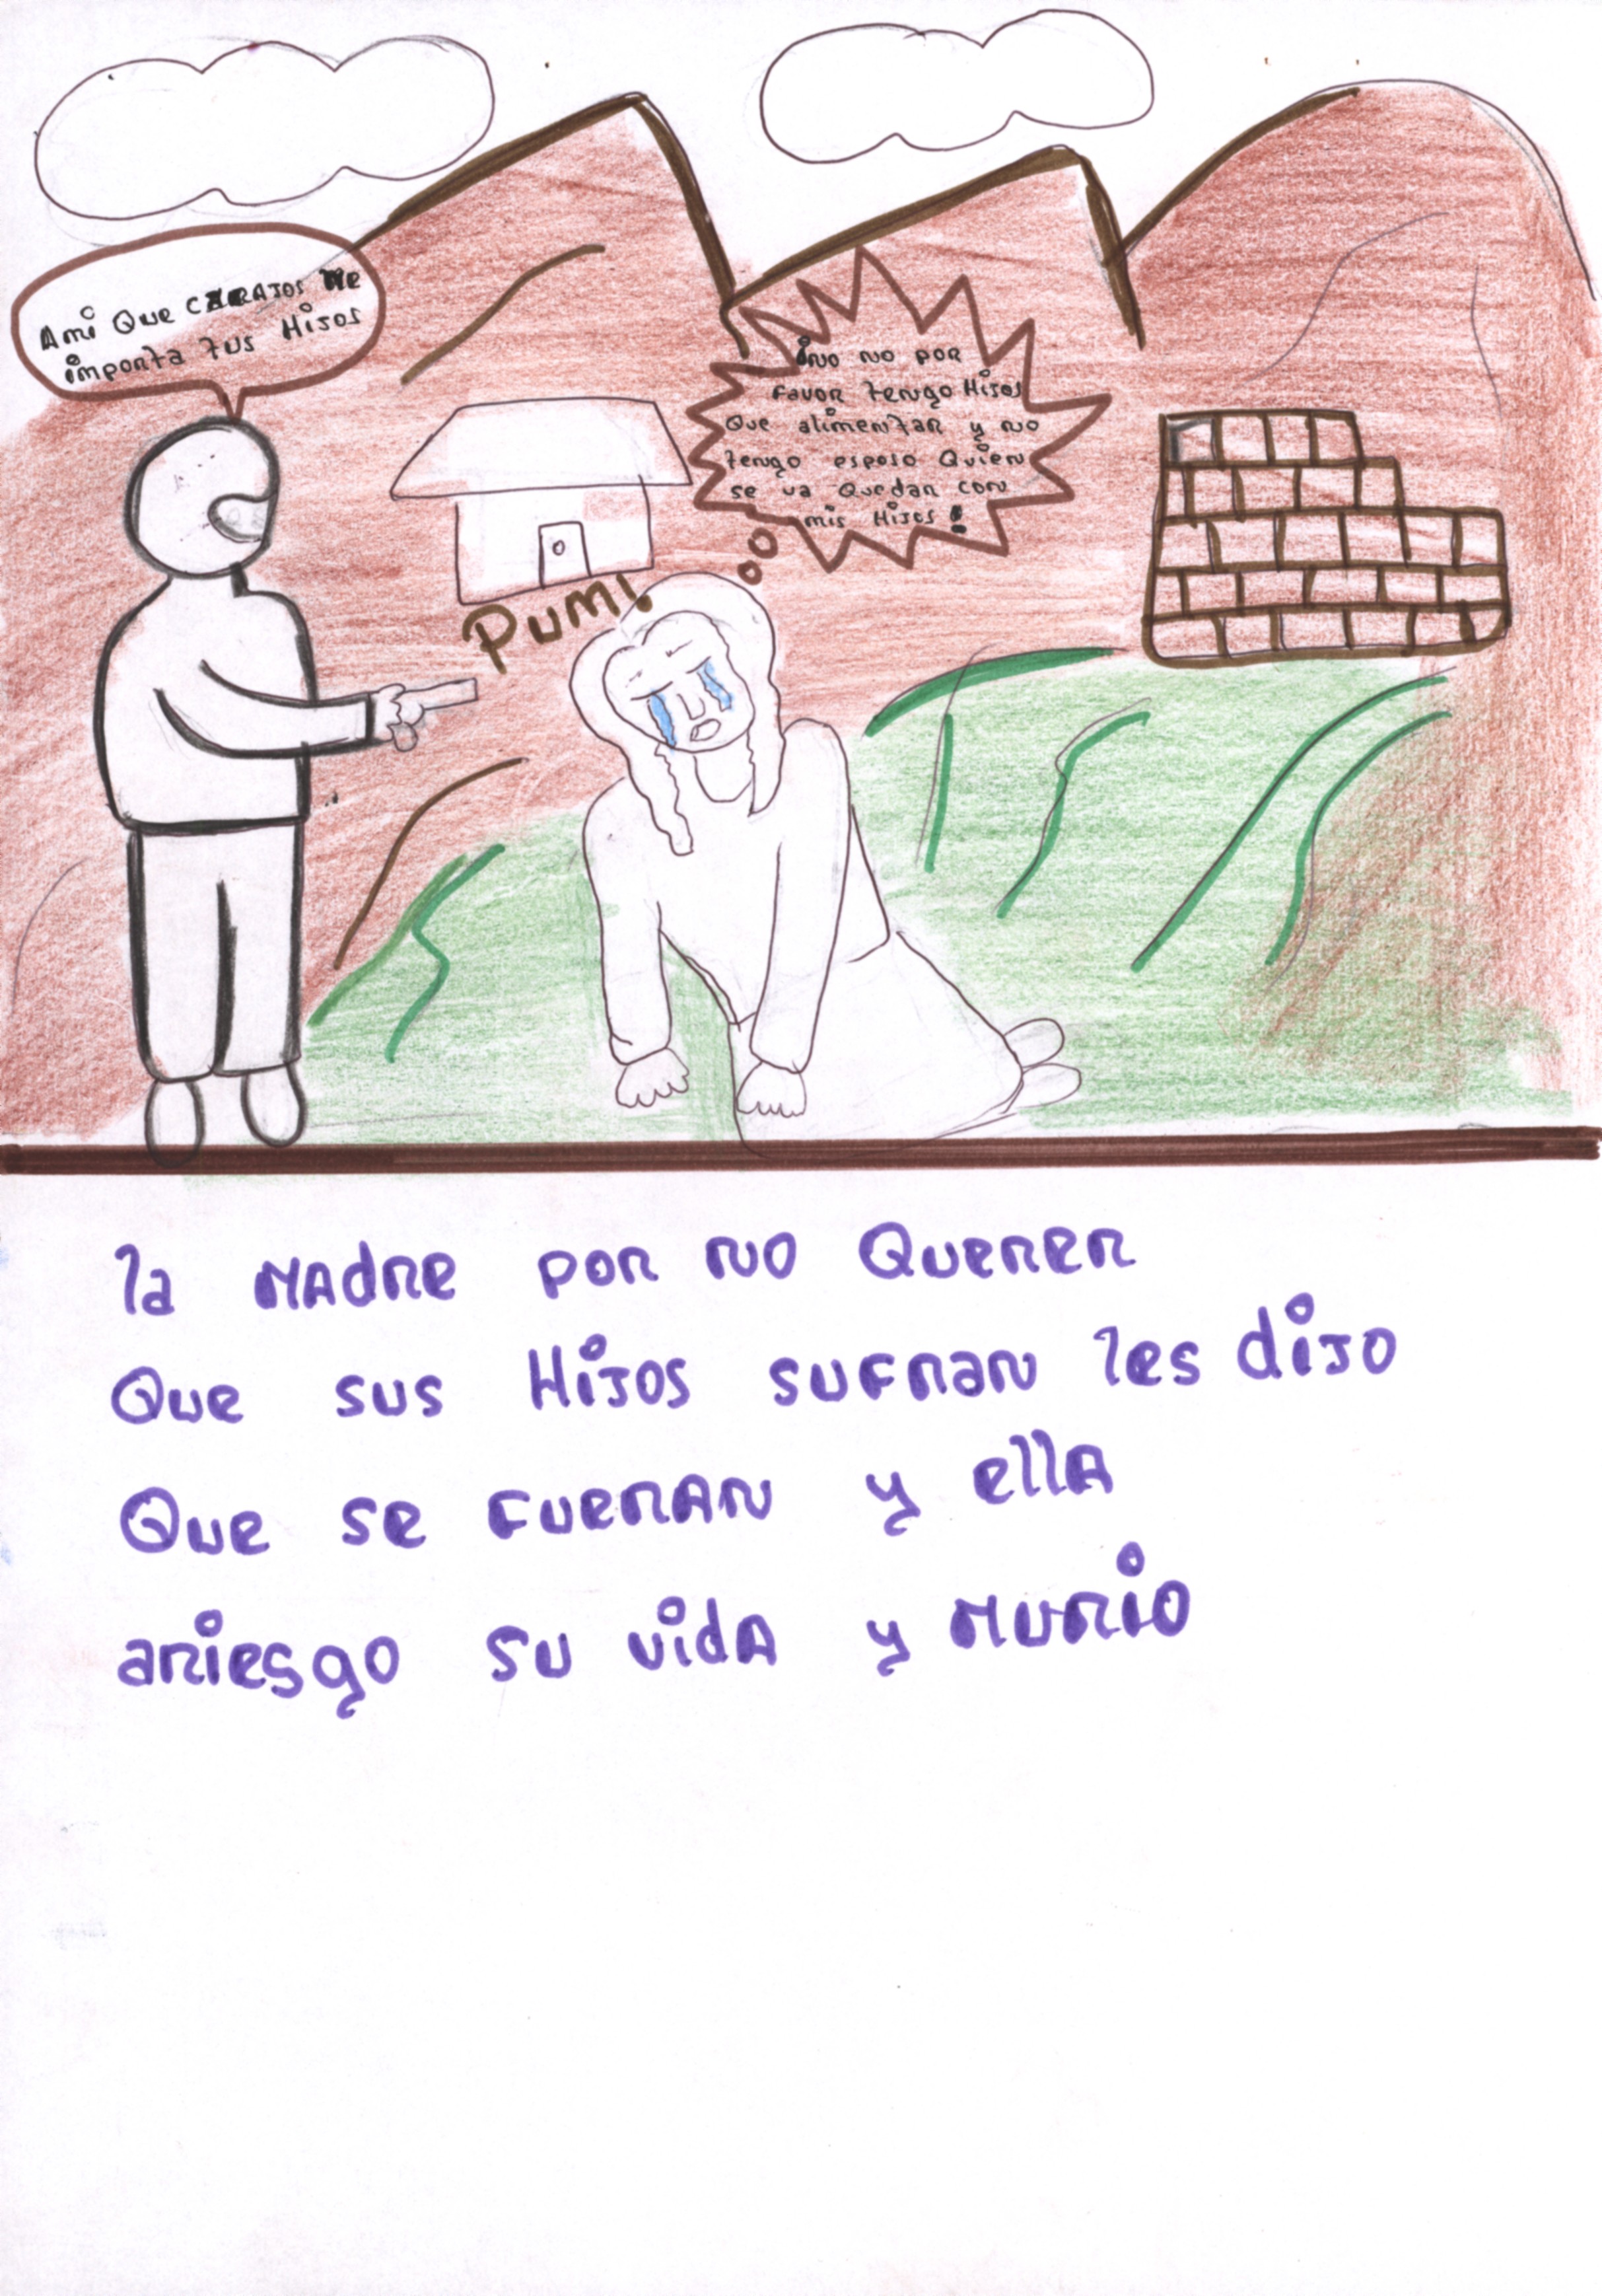 Ami Que CARAJOS me
importa tus Hijos
¡no no por
favor tengo Hijos
Que alimentar y no
tengo esposo Quien
se va Quedar con
mis Hijos!
PUM!
la MADRE POR NO QUERER
Que sus Hijos sufran les dijo
Que se fueran y ella
ariesgo su vida y MURIO